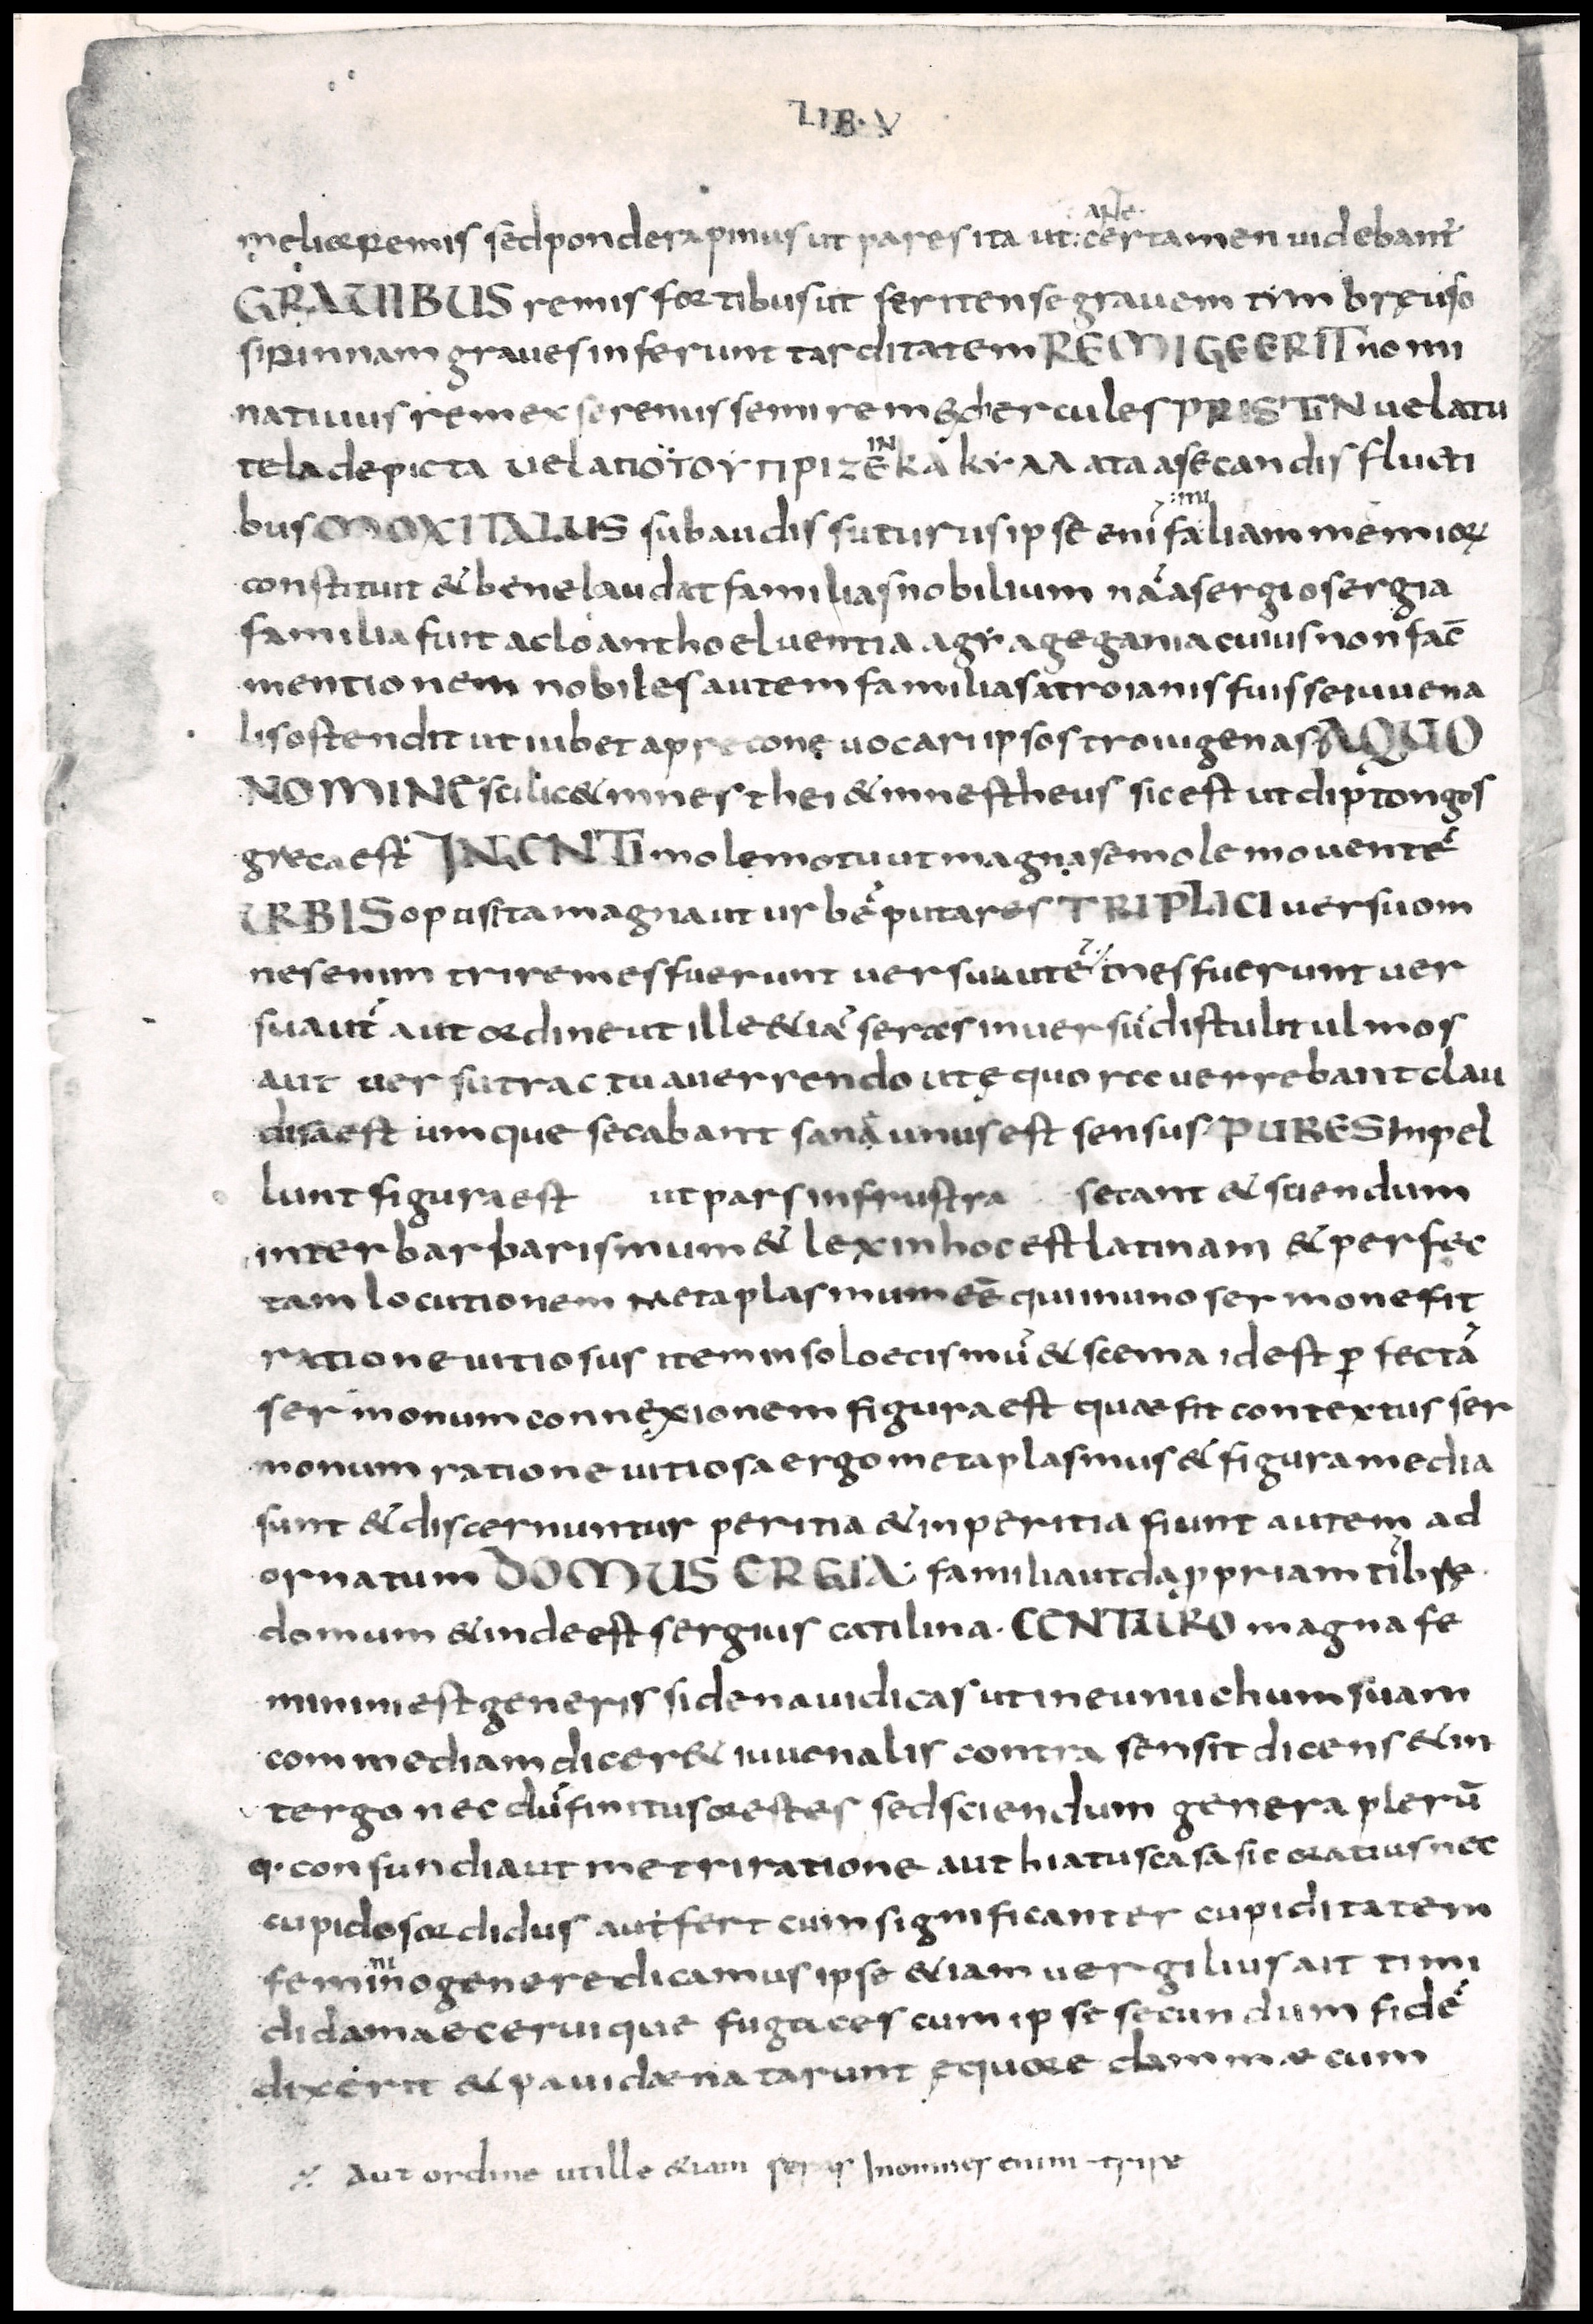 LIB. V
melior remis sed pondera pinus ut pares ita ut: certamen videbant᷑
ane.
GRAVIIBUS remis fortibus ut ferit ense gravem tim breuso
sirinnam graves inferunt tarditatem REMIGEERIT nomi
nativus remex se remus semirem & hercules PRISTIN vela tu
tela depicta vela τιοϊτου πριζε kα kυ λλ ata a secandis flucti
IN
bus MOXITALUS subaudis futurus ipse eni᷑ faliam memior
:mi
constituit & bene laudat familias nobilium na᷑ a sergio sergia
familia fuit a cloantho eluentia a gya gegania cuius non fac̄
mentionem nobiles autem familias a troianis fuisse iuuena
lis ostendit ut iubet a precone vocari ipsos troiugenas AQUO
NOMINE scilic& mnesthei & mnestheus sic est ut diptongos
greca est INGENTI mole motu ut magna se mole movente᷑
URBIS opus ita magna ut urbe᷑ putares TRIPLICI versu om
nes enim triremes fuerunt versu aute᷑ ⁒ ones fuerunt ver
su aut᷑ aut ordine ut ille &ia᷑ seras in versu᷑ distulit ulmos
aut versu tractu a verrendo ut ęquore everrebant clau
disa est umque secabant sana᷑ unus est sensus PUBES inpel
lunt figura est ut pars in frustra secant & sciendum
inter barbarismum & lexin hoc est latinam & perfec
tam locutionem metaplasmum ee̅ qui in uno sermone fit
ratione vitiosus item in soloecismu᷑ & scema id est p̱fecta᷑
sermonum connexionem figura est quae fit contextus ser
monum ratione vitiosa ergo metaplasmus & figura media
sunt & discernuntur peritia & inperitia fiunt autem ad
ornatum DOMUS ERGIA familia ut da ppriam tibre
domum & inde est sergius catilina. CENTAURO magna fe
minini est generis si de navi dicas ut in eunuchum suam
commediam dicer& iuvenalis contra sensit dicens & in
tergo nec du᷑ finitus orestes sed sciendum genera pleru̅
q. confundi aut metri ratione aut hiatus casa sic oratius nec
cupido sordidus aufert cum significanter cupiditatem
femino genere dicamus ipse &iam vergilius ait timi
ni
di damae cervique fugaces cum ipse secundum fide᷑
dixerit & pavidae natarunt ęquore dammae cum
⁒ aut ordine ut ille &iam seras In omnes enim trire